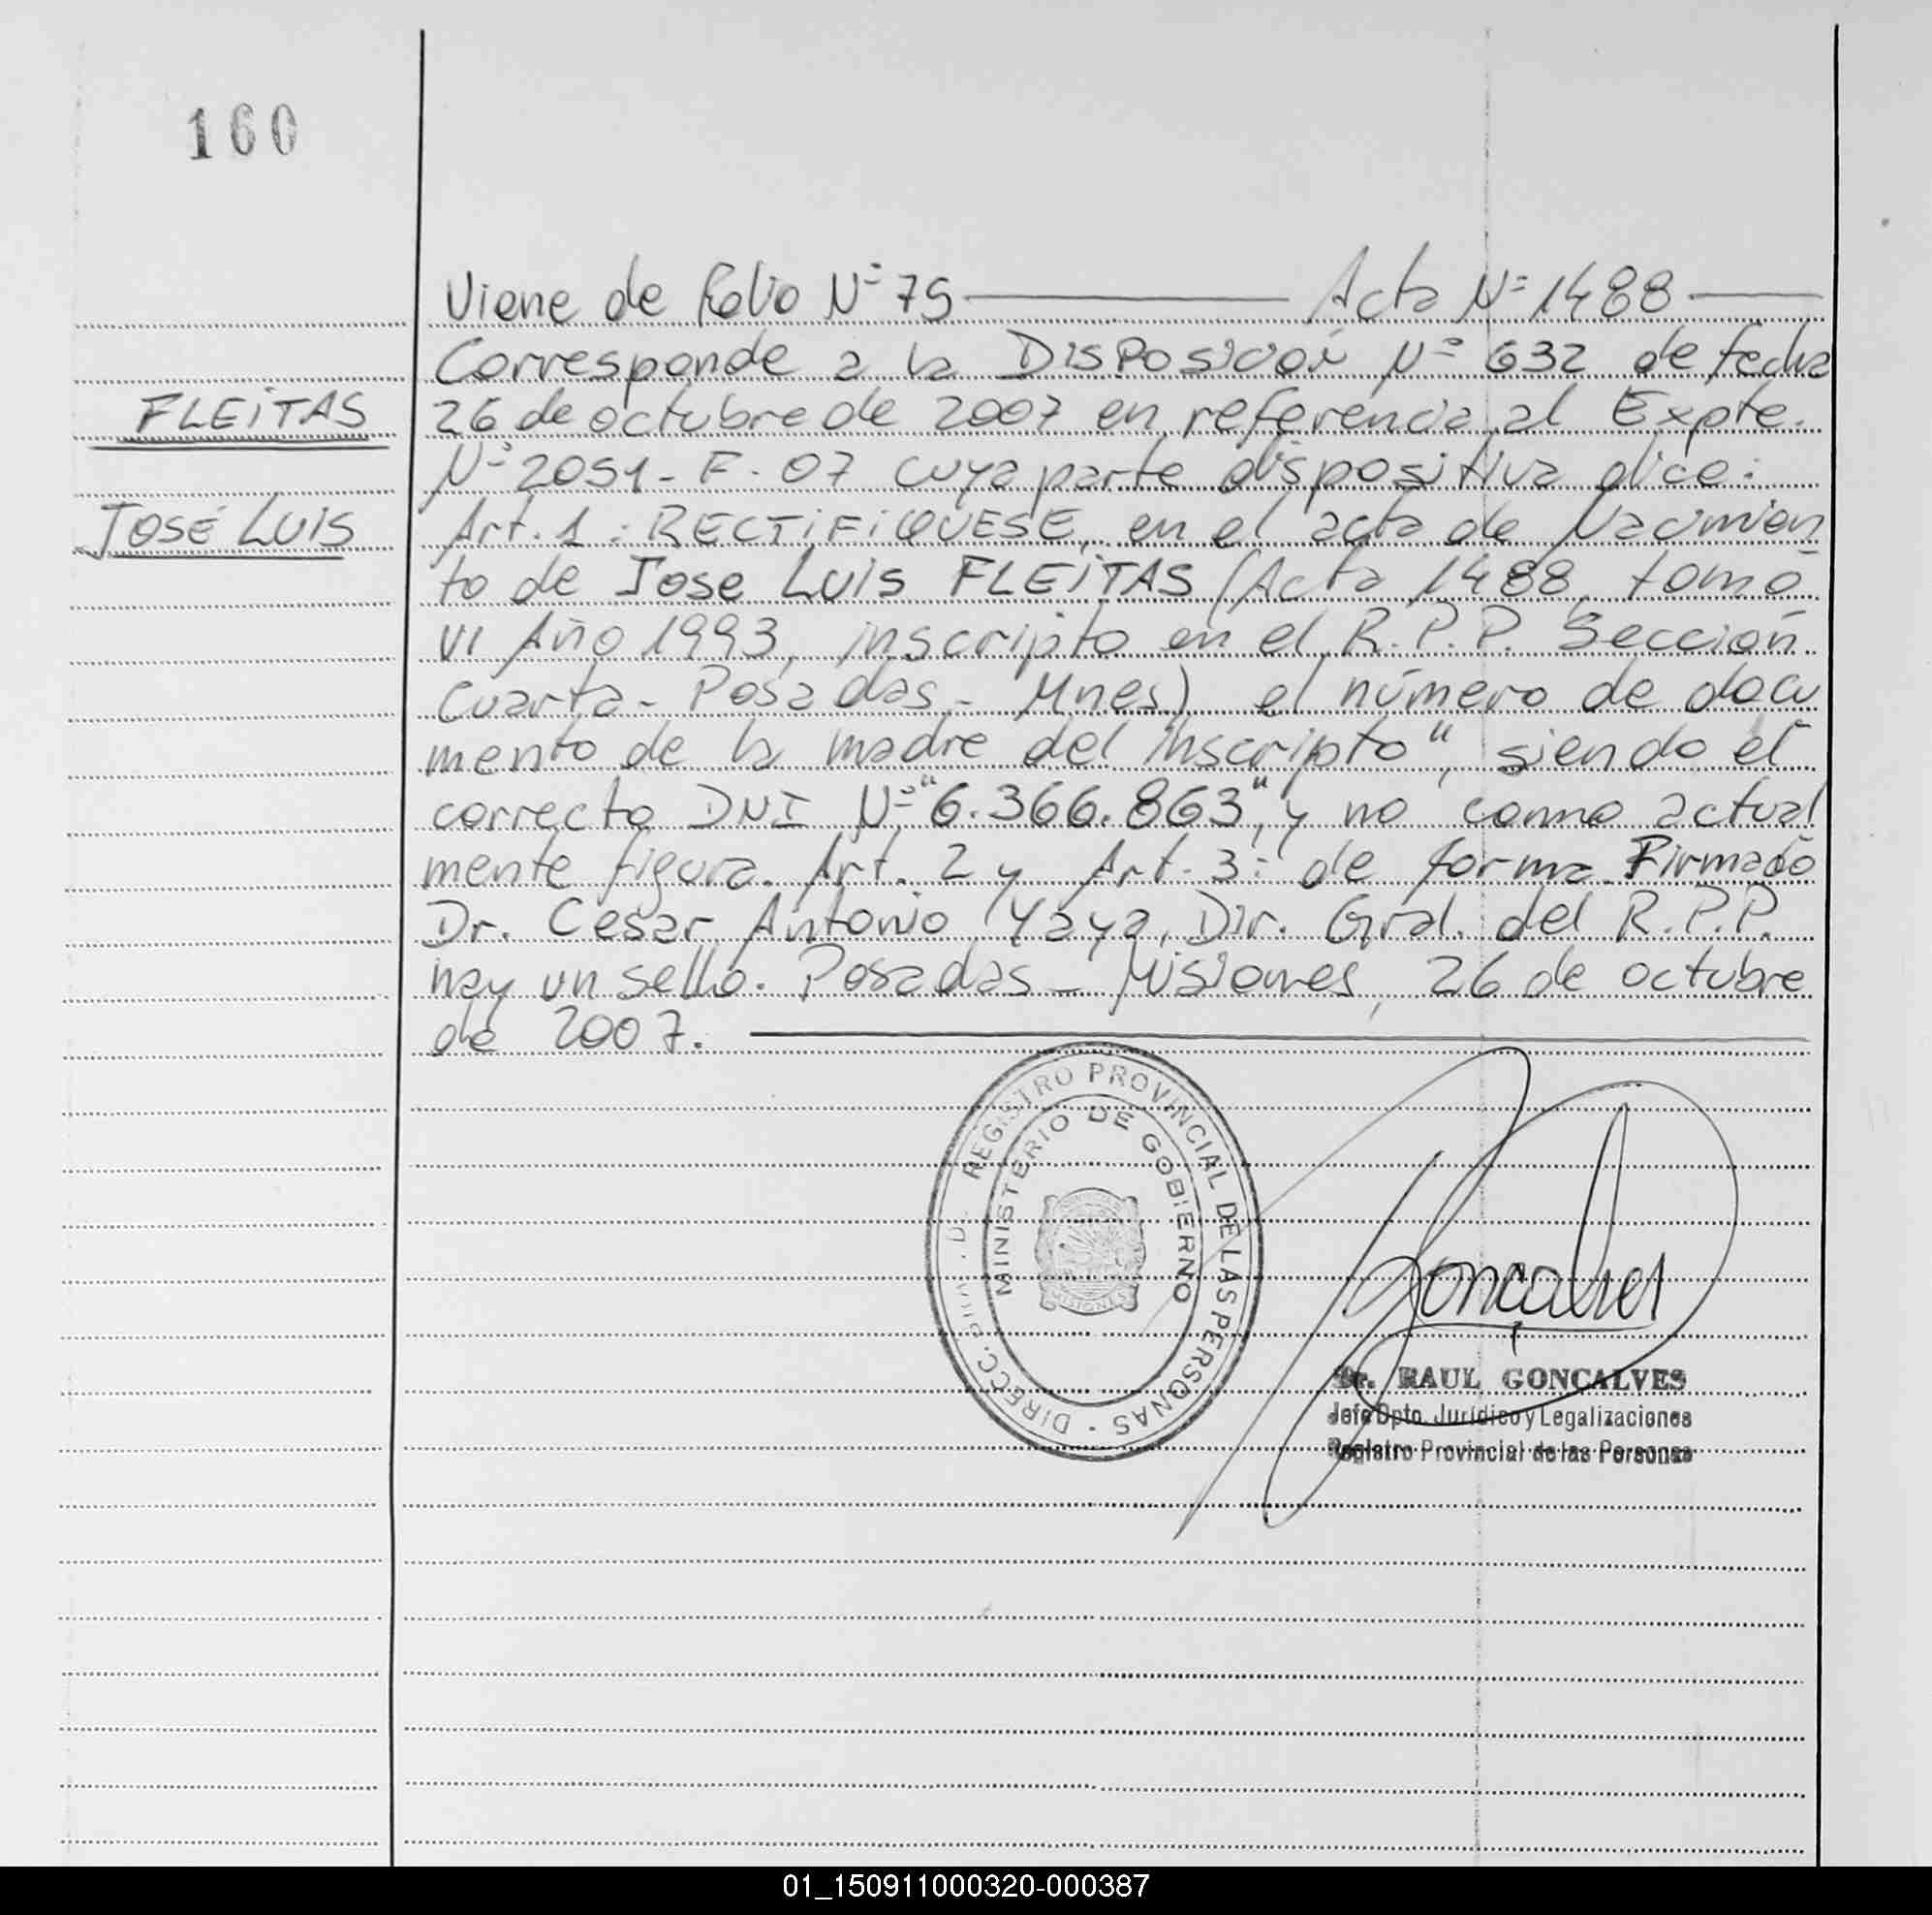 160
Viene de folio Nº 75 Acta Nº 1488
Corresponde a la DISPOSICIÓN Nº 632 de fecha
FLEITAS
26 de octubre de 2007 en referencia al Expte.
Nº 2051 - F - 07 cuya parte dispositiva dice:
JOSÉ LUIS
Art. 1: RECTIFIQUESE, en el acta de Nacimien
to de Jose Luis FLEITAS (Acta 1488, tomo
VI Año 1993, inscripto en el R.P.P. Sección
Cuarta - Posadas - Mnes) el número de docu
mento de la madre del inscripto", siendo el
correcto DNI Nº "6.366.863", y no como actual
mente figura. Art. 2 y Art. 3: de forma. Firmado
Dr. Cesar Antonio Yaya, Dir. Gral. del R.P.P.
hay un sello. Posadas - Misiones, 26 de octubre
de 2007.
REGISTRO PROVINCIAL DE LAS PERSONAS - DIRECC.
MINISTERIO DE GOBIERNO
MISIONES
Gonçalves
Dr. RAUL GONCALVES
Jefe Dpto. Jurídico y Legalizaciones
Registro Provincial de las Personas
01_150911000320-000387